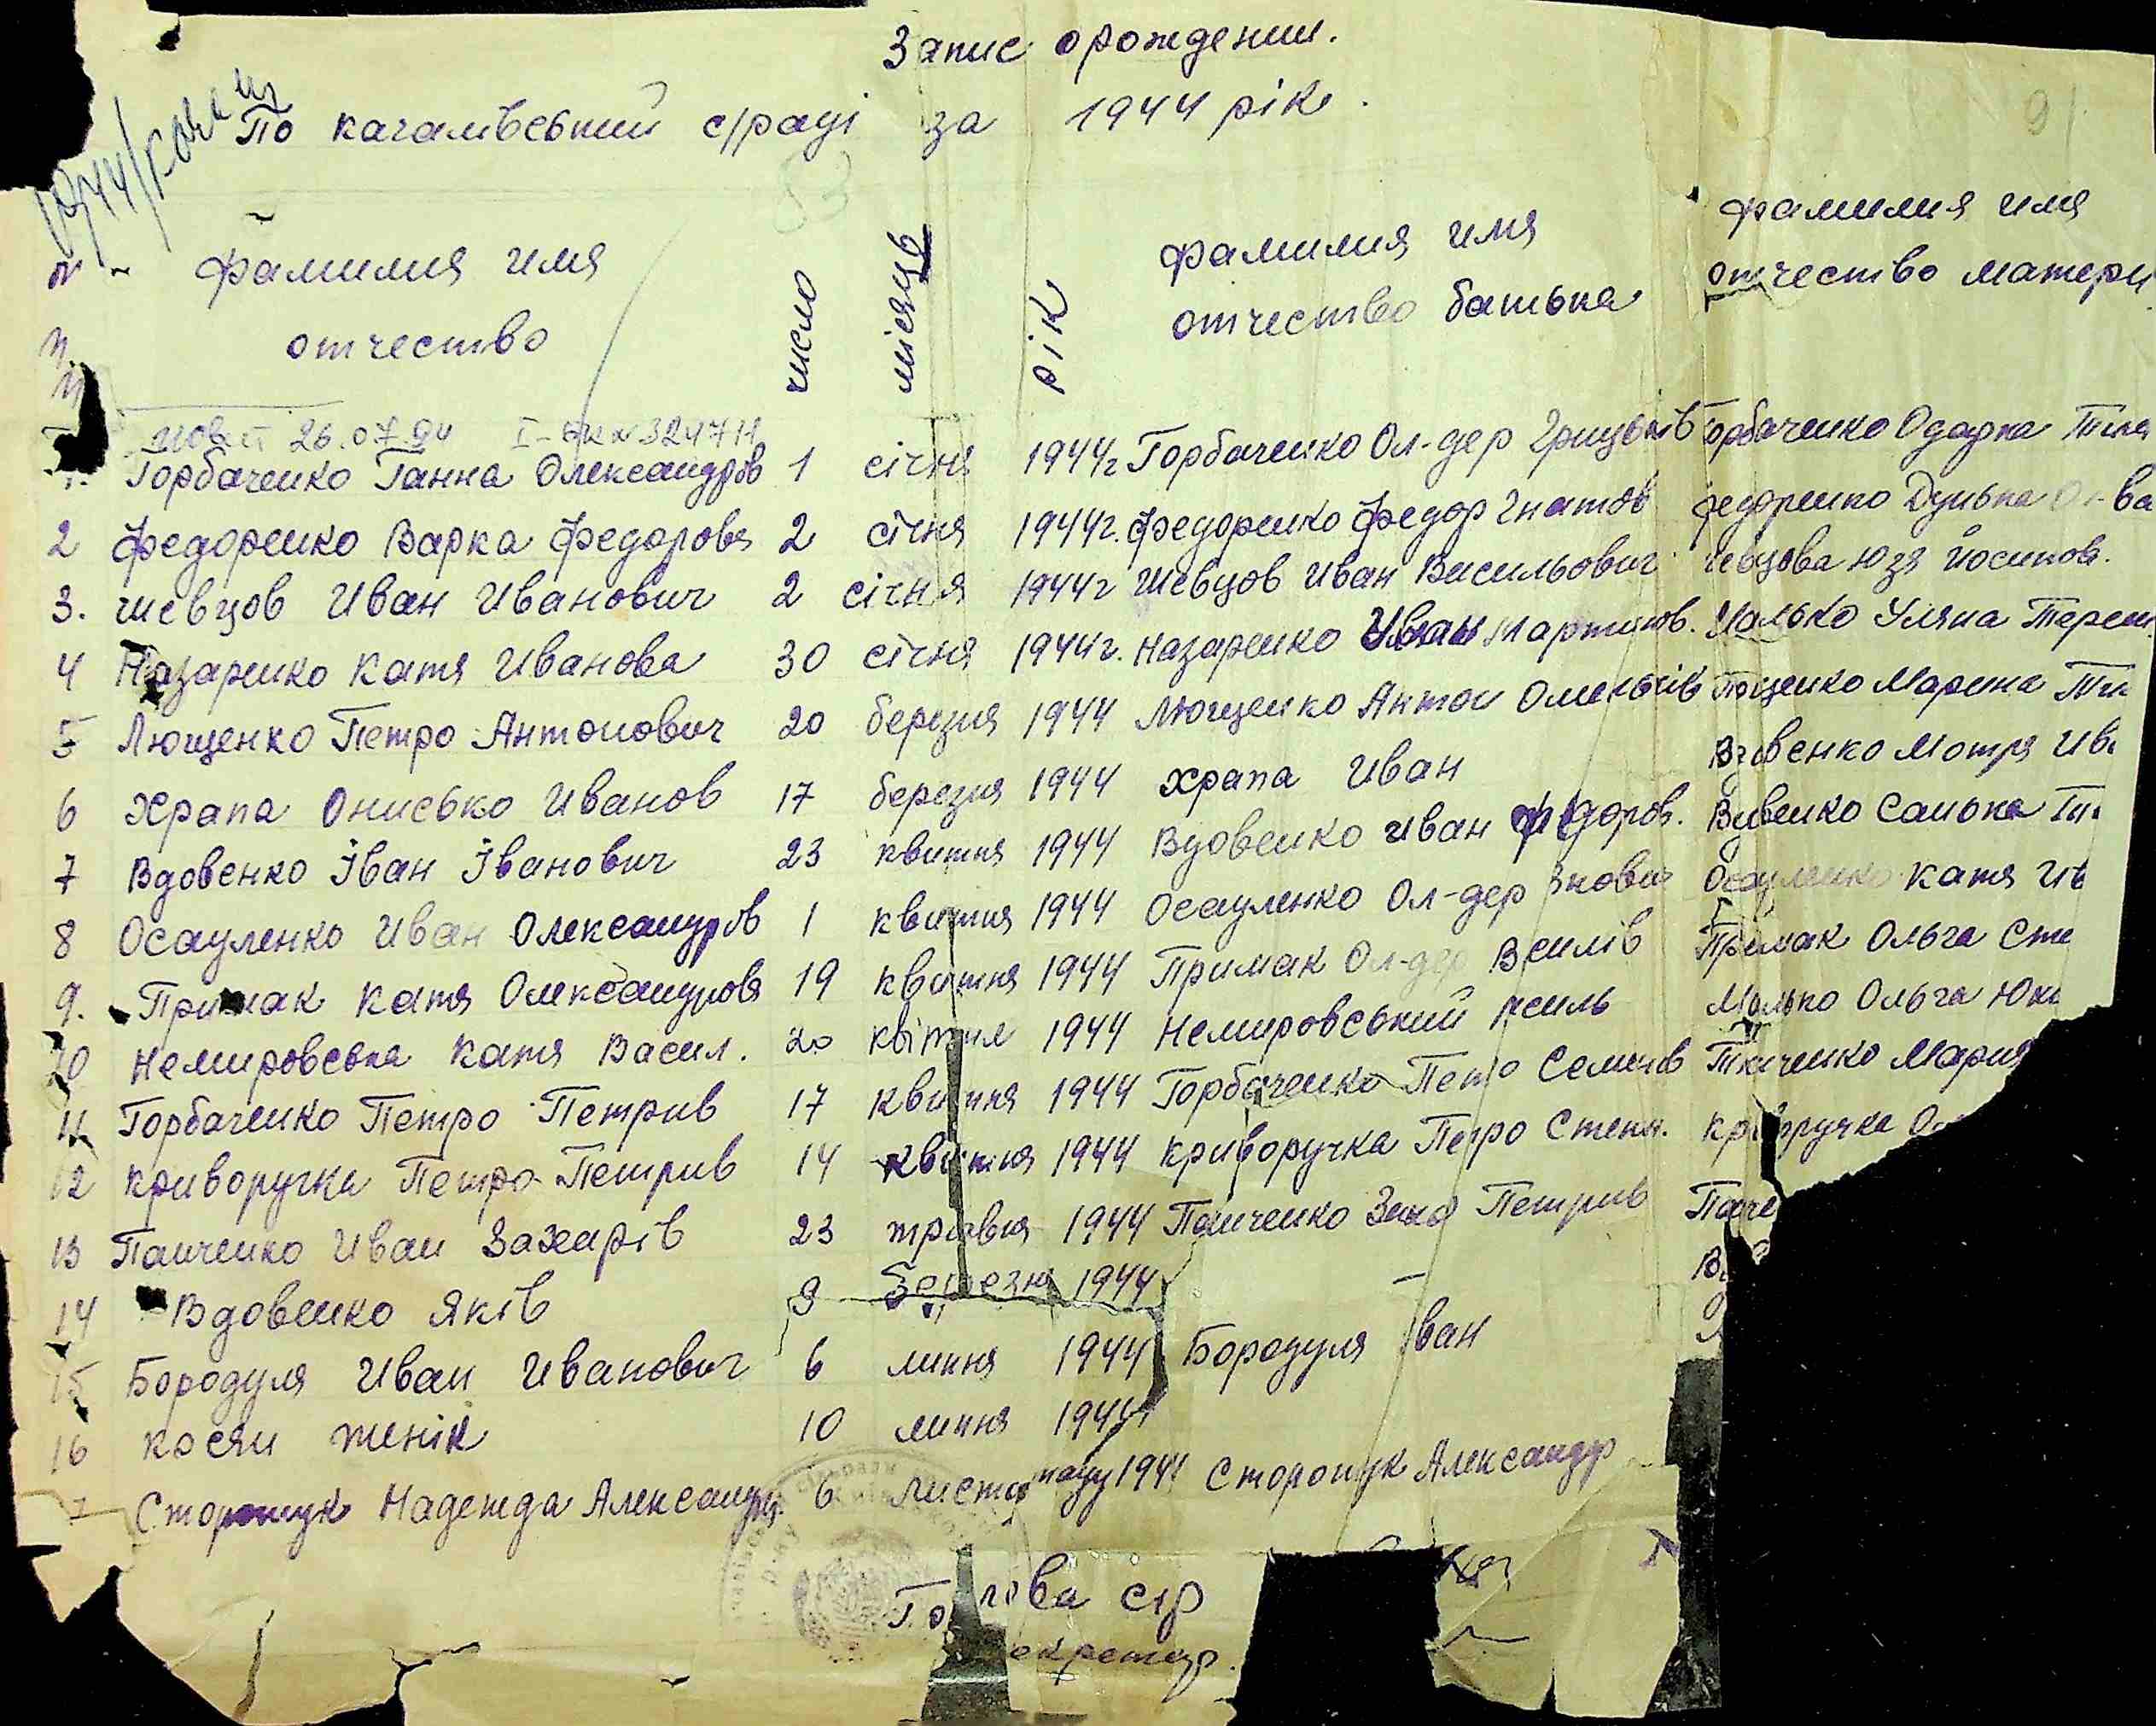 Запис о рождении.
По качалівській с/раді за 1944 рік.
91
83
фамилия имя отчество
число
місяць
рік
фамилия имя отчество батька
фамилия имя отчество матери
26.07.94 I-
1. Горбаченко Ганна Олександрів 1 січня 1944г Горбаченко Ол-дер Грицьків Горбаченко Одарка
2 Федоренко Варка Федорова 2 січня 1944г. Федоренко Федор Гнатов Федоренко Дунька
3. Шевцов Иван Иванович 2 січня 1944г Шевцов Иван Висильович Шевцова Юзя Йосипов.
4 Назаренко Катя Иванова 30 січня 1944г. Назаренко Иван Мартинов. Малько Уляна Терен
5 Лющенко Петро Антонович 20 березня 1944 Лющенко Антон Омельків Марина
6 Храпа Онисько Иванов 17 березня 1944 Храпа Иван Мотря Ив
7 Вдовенко Іван Іванович 23 квитня 1944 Вдовенко Иван Федоров. Вдовенко Санька
8 Осауленко Иван Олександрів 1 квитня 1944 Осауленко Ол-дер Осауленко Катя Ив
9. Примак Катя Олександровя 19 квитня 1944 Примак Ол-дер Всилів Примак Ольга Сте
10 Немировська Катя Васил. 20 квітня 1944 Немировський Малько Ольга
11 Горбаченко Петро Петрив 17 квитня 1944 Горбаченко Петро Семенів Ткаченко Мария
12 Криворучка Петро Петрив 14 квитня 1944 Криворучка Петро Степ. Криворучка
13 Панченко Иван Захарів 23 травня 1944 Панченко Петрив Панче
14 Вдовенко Яків 9 березня 1944 –
15 Бородуля Иван Иванович 6 липня 1944 Бородуля Іван
16 Косян Женік 10 липня 1944
7 Сторощук Надежда Александр. 6 листопаду 1944 Сторощук Александр
Голова с/р
екретар.